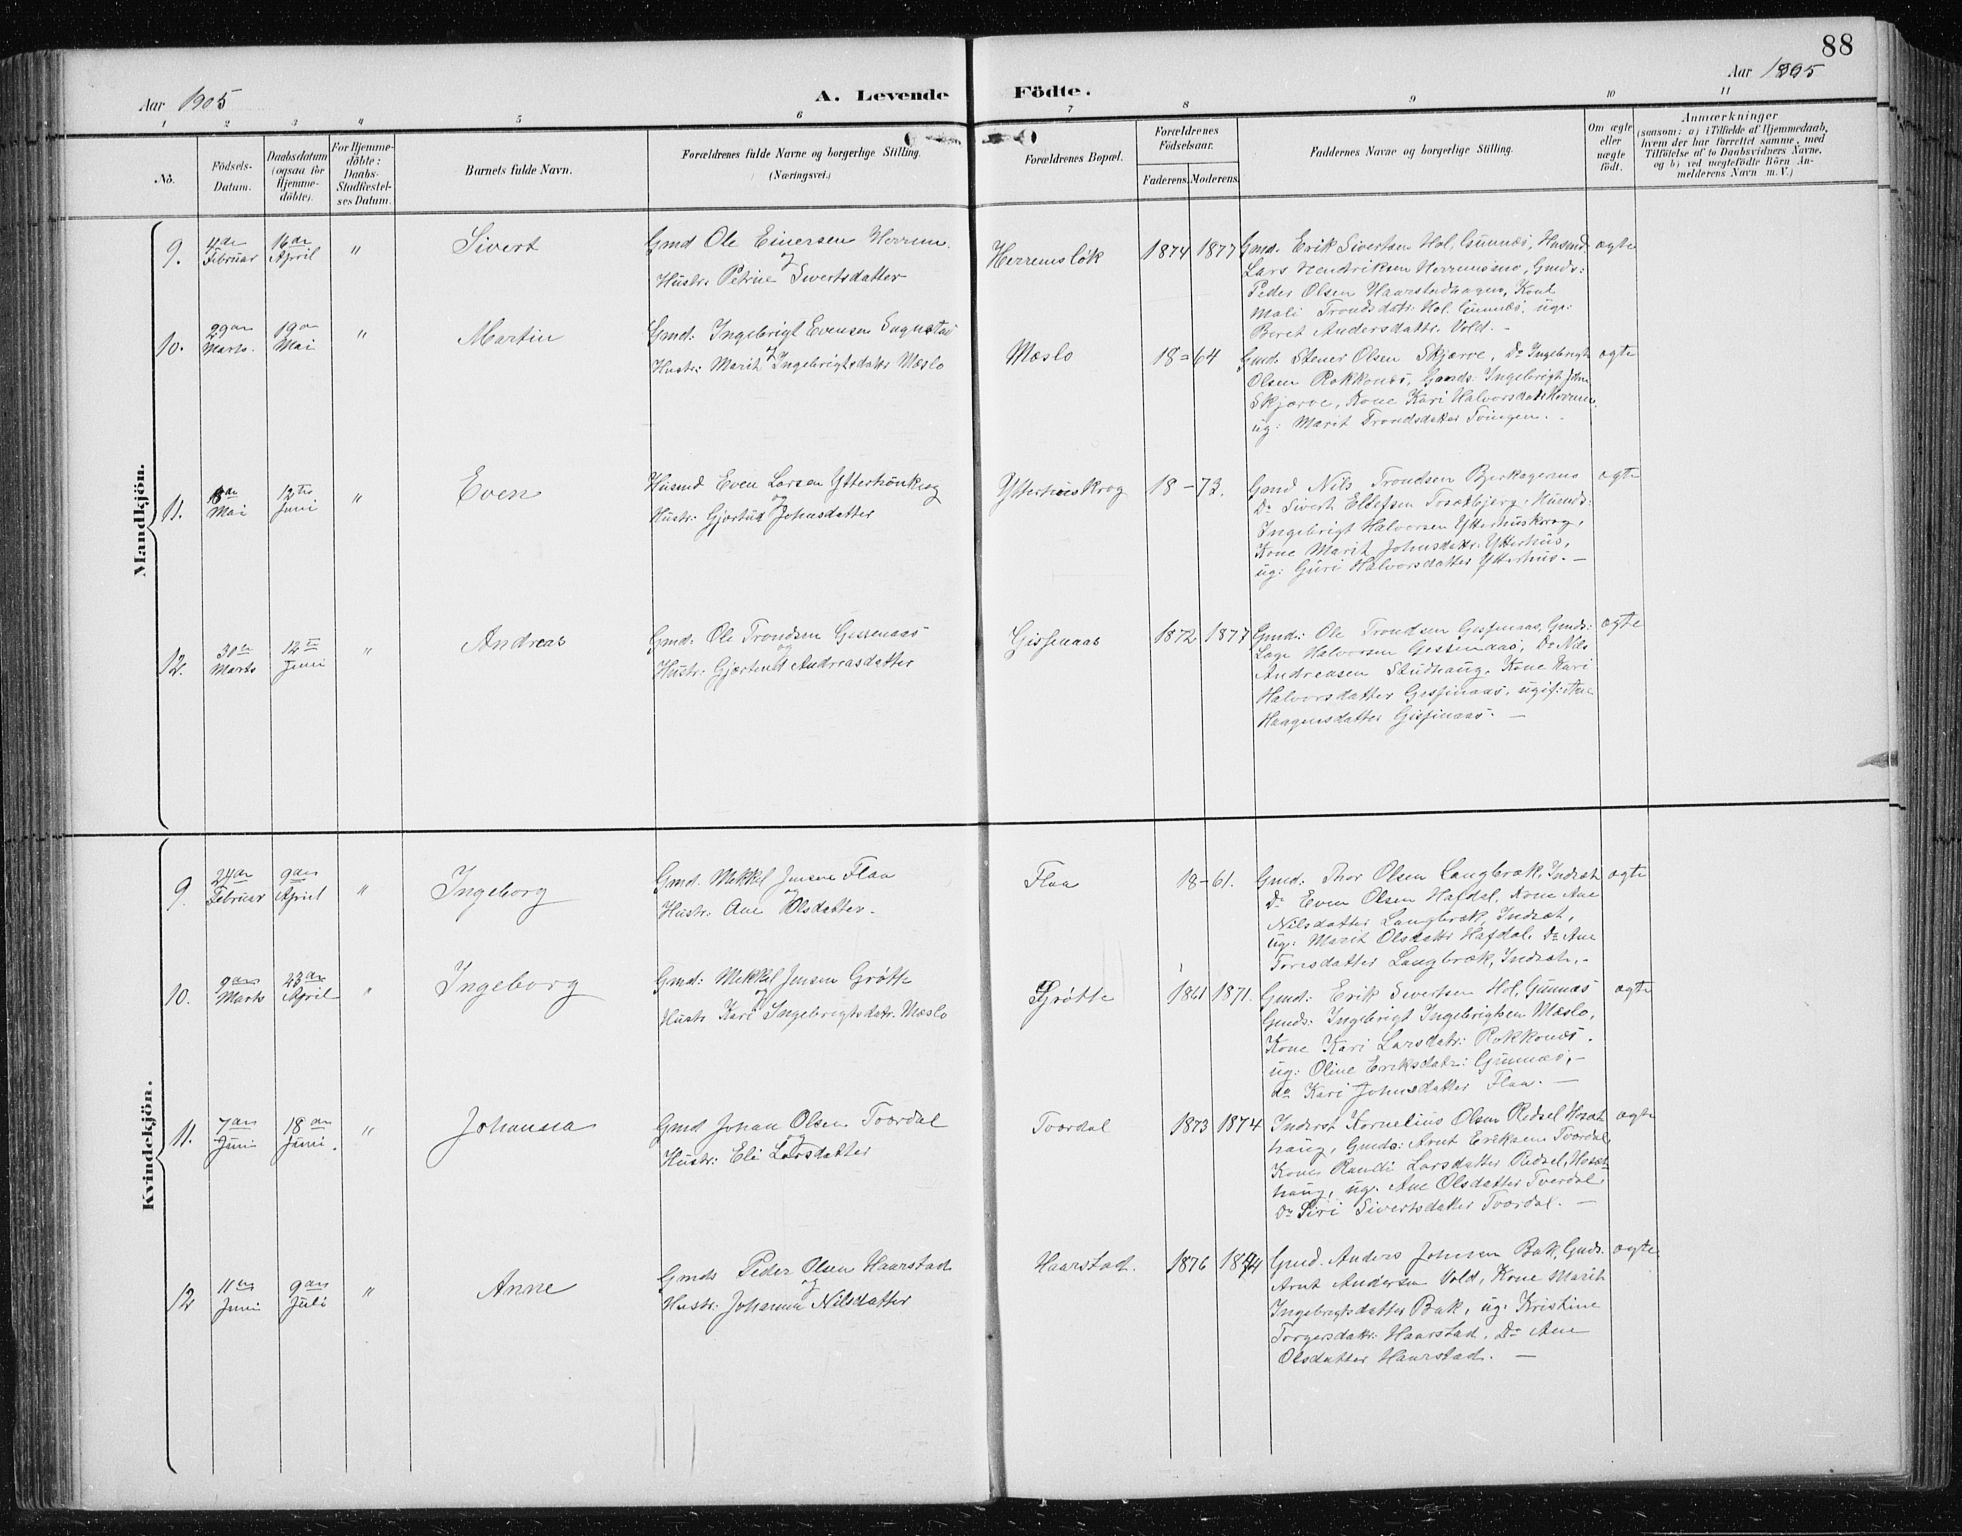 88
Aar 1905
A. Levende Födte.
Aar 1895
1 2 3 4 5 6 7 8 9 10 11
No.
Födsels-
Datum.
Daabsdatum
(ogsaa for
Hjemme-
döbte).
For Hjemme-
döbte:
Daabs-
Stadfæstel-
ses Datum.
Barnets fulde Navn.
Forældrenes fulde Navne og borgerlige Stilling.
(Næringsvei.)
Forældrenes Bopæl.
Forældrenes
Födselsaar.
Faderens. Moderens.
Faddernes Navne og borgerlige Stilling.
Om ægte
eller
uægte
födt.
Anmærkninger
(saasom: a) i Tilfælde af Hjemmedaab,
hvem der har forrettet samme, med
Tilföielse af to Daabsvidners Navne,
og b) ved uægtefödte Börn An-
melderens Navn m. V.)
Mandkjön.
9.
4de
Februar
16de
April
"
Sivert
Gmd Ole Einersen Herrem
og
Hustr. Petrine Sivertsdatter
Herremsløk
1874 1877
Gmd. Erik Sivertsen Hol, Gunnæs, Husmd.
Lars Hendriksen Herremsmo, Gmds:
Peder Olsen Haarstadhagen, Kone
Mali Trondsdatr. Hol. Gunnæs, ug:
Beret Andersdattr. Vold. –
ægte
10.
29de
Marts.
19de
Mai
"
Martin
Gmd: Ingebrigt Evensen Sugnstad
og
Hustr: Marit Ingebrigtsdattr Mæslo
Mæslo
18 = 64
Gmd: Stener Olsen Skjærve, Do Ingebrigt
Olsen Rokkones, Gmds: Ingebrigt John
Skjærve, Kone Kari Halvorsdatr Herrem,
ug: Marit Trondsdatter Svingen. –
ægte
11.
18de
Mai
12te
Juni
"
Even
Husmd Even Larsen Ytterhuskrog
og
Hustr: Gjertrud Johnsdatter
Ytterhuskrog
18 – 73.
Gmd Nils Trondsen Bjerkagerms
Do Sivert Ellefsen Trætbjerg, Husmds:
Ingebrigt Halvorsen Ytterhuskrog,
Kone Marit Johnsdattr. Ytterhus,
ug: Guri Halvorsdatter Ytterhus. –
ægte
12.
30te
Marts
12te
Juni
"
Andreas
Gmd: Ole Trondsen Gissenaas
og
Hustr: Gjertrud Andreasdatter
Gissinaas
1872 1877
Gmd: Ole Trondsen Gissinaas, Gmds:
Lage Halvorsen Gissenaas, Do Nils
Andreasen Studhaug, Kone Kari
Halvorsdatter Gissinaas, ugif: Ane
Haagensdatter Gissinaas. –
ægte
Kvindekjön.
9.
24de
Februar
9de
April
"
Ingeborg
Gmd. Mekkel Jensen Flaa
og
Hustr: Ane Olsdatter.
Flaa
18 – 61.
Gmd: Thor Olsen Langbræk, Indsæt
Do Even Olsen Hafdal, Kone Ane
Nilsdatter Langbræk, Indsæt,
ug: Marit Olsdattr Hafdal, Do Ane
Toresdatter Langbræk, Indsæt. –
ægte
10.
9de
Marts
23de
April
"
Ingeborg
Gmd: Mekkel Jensen Grøtte
og
Hustr Kari Ingebrigtsdatr. Mæslo
Grøtte
1861 1871.
Gmd: Erik Sivertsen Hol, Gunnæs
Gmds: Ingebrigt Ingebrigtsen Mæslo,
Kone Kari Larsdatr: Rokkones.
ug: Oline Eriksdatr: Gunnæs, –
do Kari Johnsdatter Flaa. –
ægte
11.
7de
Juni
18de
Juni.
"
Johanna
Gmd Johan Olsen Tværdal
og
Hustr: Eli Larsdatter
Tværdal
1873 1874
Inderst Kornelius Olsen Redsel Hosæt
haug, Gmds: Arnt Eriksen Tværdal
Kone Randi Larsdatter Redsel, Hosæt-
haug, ug. Ane Olsdatter Tverdal
Do Siri Sivertsdatter Tværdal. –
ægte
12
11de
Juni
9de
Juli
"
Anne
Gmds Peder Olsen Haarstad
og
Hustr: Johanna Nilsdatter
Haarstad.
1876 1874
Gmd. Anders Johnsen Bak, Gmds:
Arnt Andersen Vold, Kone Marit
Ingebrigtsdatter Bak, ug: Kristine
Torgersdatr: Haarstad, Do Ane
Olsdatter Haarstad. –
ægte